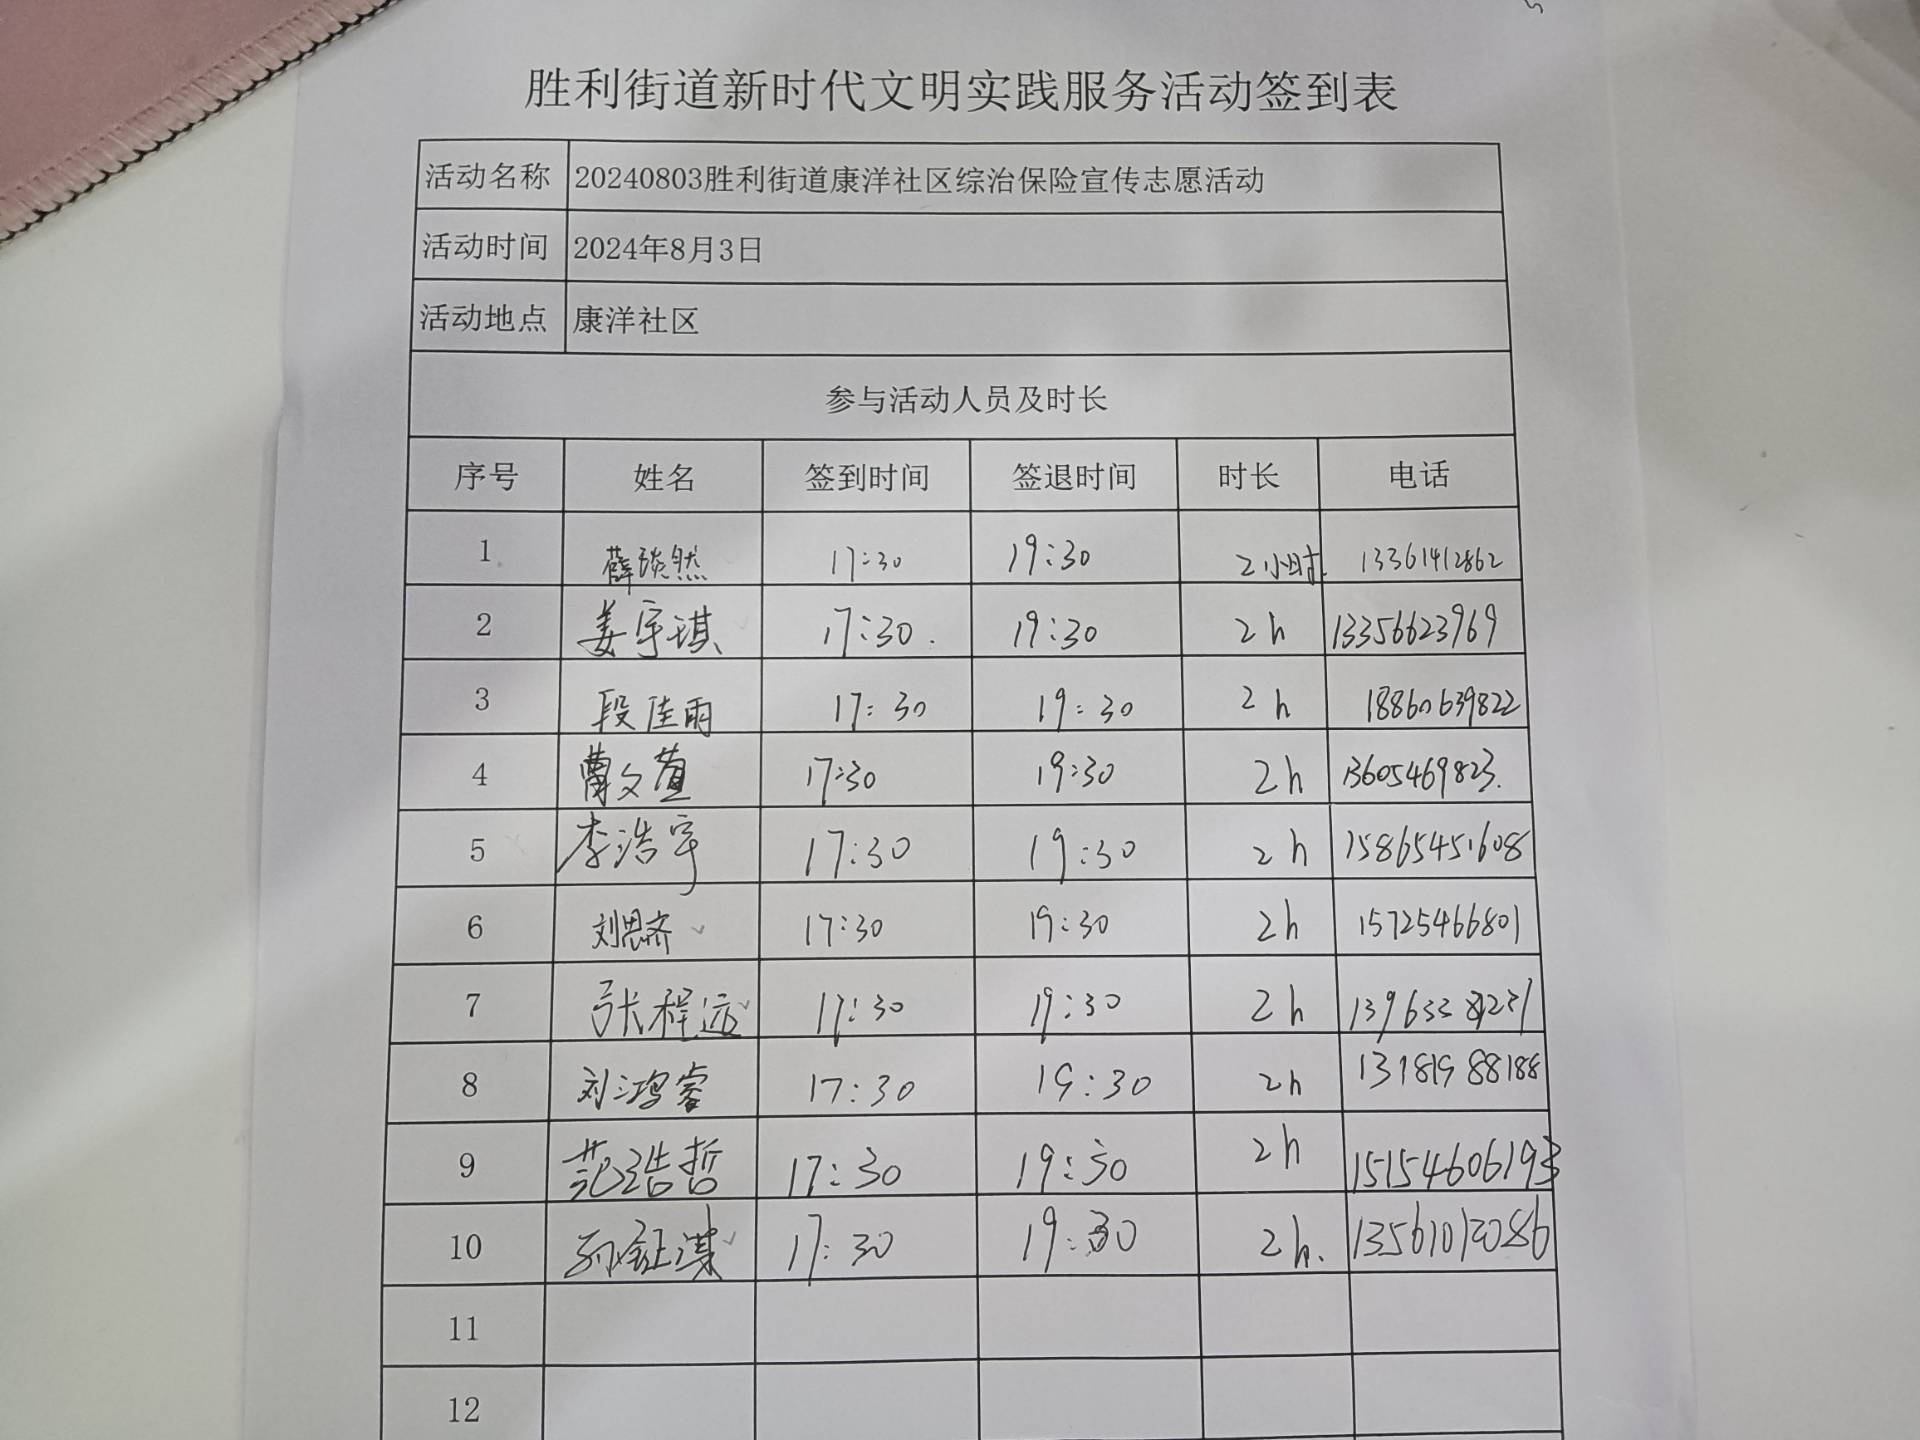 胜利街道新时代文明实践服务活动签到表
活动名称 20240803胜利街道康洋社区综治保险宣传志愿活动
活动时间 2024年8月3日
活动地点 康洋社区
参与活动人员及时长
序号 姓名 签到时间 签退时间 时长 电话
1 薛琰然 17:30 19:30 2小时. 13361412862
2 姜宇琪 17:30. 19:30 2h 13356623969
3 段佳雨 17:30 19:30 2h 18860639822
4 曹文萱 17:30 19:30 2h 13605469823.
5 李浩宇 17:30 19:30 2h 15865451608
6 刘思齐 17:30 19:30 2h 15725466801
7 张程远 17:30 19:30 2h
8 刘鸿睿 17:30 19:30 2h 13181988188
9 范浩哲 17:30 19:30 2h 15154606193
10 17:30 19:30 2h.
11
12